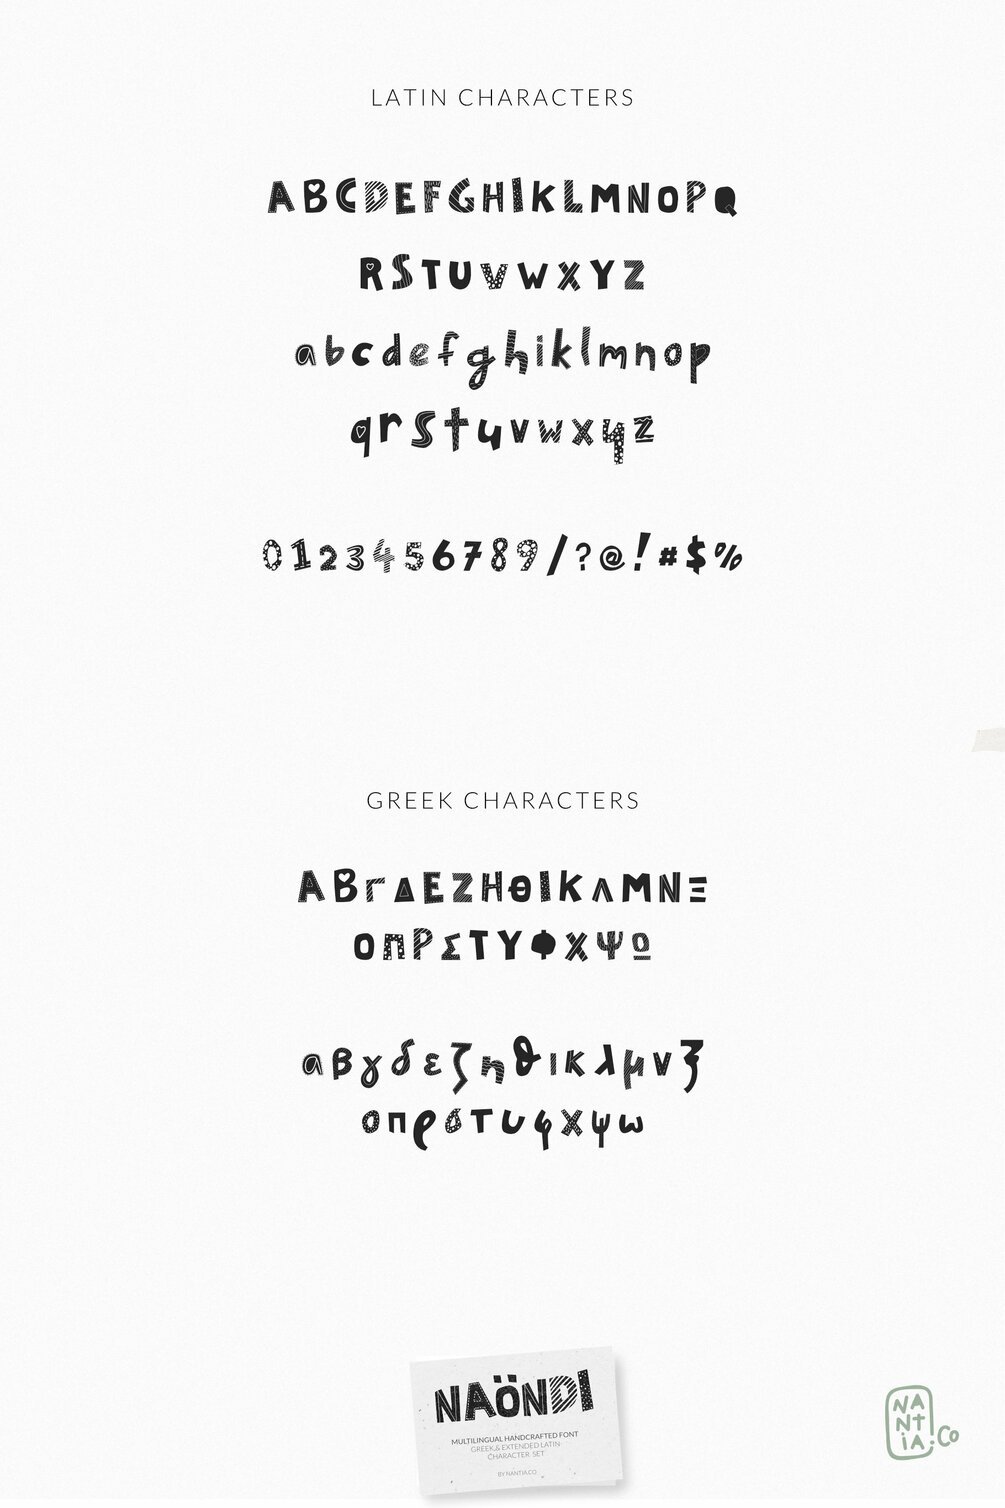 LATIN CHARACTERS
ABCDEFGHIKLMNOPQ
RSTUVWXYZ
abcdefghiklmnop
qrstuvwxyz
0123456789/?@!#$%
GREEK CHARACTERS
ΑΒΓΔΕΖΗΘΙΚΛΜΝΞ
ΟΠΡΣΤΥΦΧΨΩ
αβγδεζηθικλμνξ
οπρστυφχψω
NAÖNDI
MULTILINGUAL HANDCRAFTED FONT
GREEK & EXTENDED LATIN
CHARACTER SET
BY NANTIA.CO
NA
NT
iA.Co